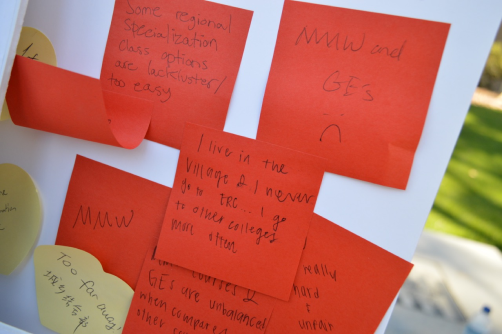 Some regional
Specialization
class options
are lackluster/
too easy
MMW and
GE's
I live in the
Village & I never
go to ERC... I go
to other colleges
more often
MMW
Too far away,
courses &
GEs are unbalanced
when compared
other
really
hard
&
unfair